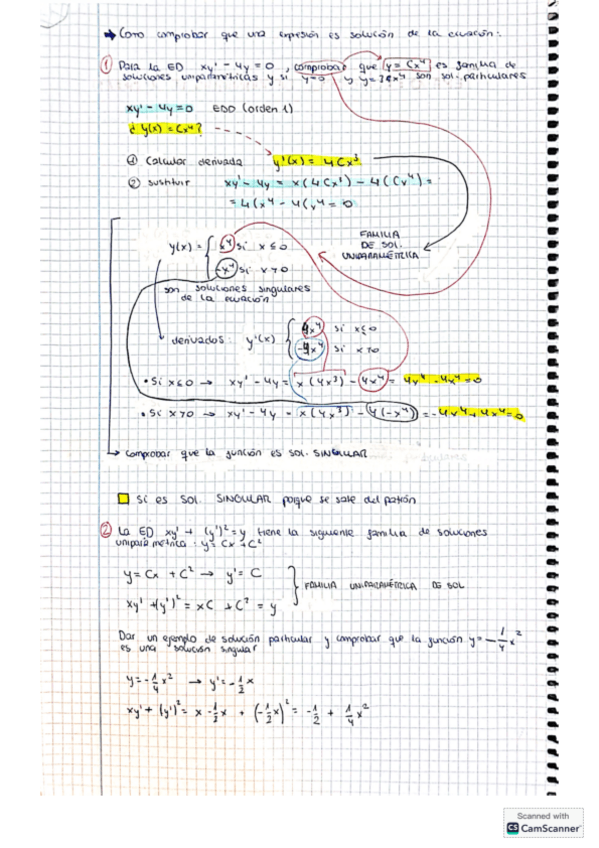 → Como comprobar que una expresión es solución de la ecuación:
① Para la ED xy' - 4y = 0, comprobar que y = Cx⁴ es familia de
soluciones uniparamétricas y si y=0 y y=3x⁴ son sol. particulares
xy' - 4y = 0 EDO (orden 1)
¿ y(x) = Cx⁴?
① Calcular derivada y'(x) = 4Cx³
② sustituir xy' - 4y = x(4Cx³) - 4(Cx⁴) =
= 4Cx⁴ - 4Cx⁴ = 0
FAMILIA
DE SOL.
UNIPARAMÉTRICA
y(x) = { x⁴ si x ≤ 0
-x⁴ si x > 0
son soluciones singulares
de la ecuación
derivados: y'(x) { 4x⁴ si x ≤ 0
-4x⁴ si x > 0
• Si x ≤ 0 → xy' - 4y = x(4x³) - 4x⁴ = 4x⁴ - 4x⁴ = 0
• Si x > 0 → xy' - 4y = x(4x³) - 4(-x⁴) = -4x⁴ + 4x⁴ = 0
→ comprobar que la función es SOL. SINGULAR
SI es SOL. SINGULAR porque se sale del patrón
② La ED xy' + (y')² = y tiene la siguiente familia de soluciones
uniparamétrica: y = Cx + C²
y = Cx + C² → y' = C
xy' + (y')² = xC + C² = y
} FAMILIA UNIPARAMÉTRICA DE SOL
Dar un ejemplo de solución particular y comprobar que la función y = -1/4 x²
es una solución singular
y = -1/4 x² → y' = -1/2 x
xy' + (y')² = x -1/2 x + (-1/2 x)² = -1/2 + 1/4 x²
Scanned with
CS CamScanner